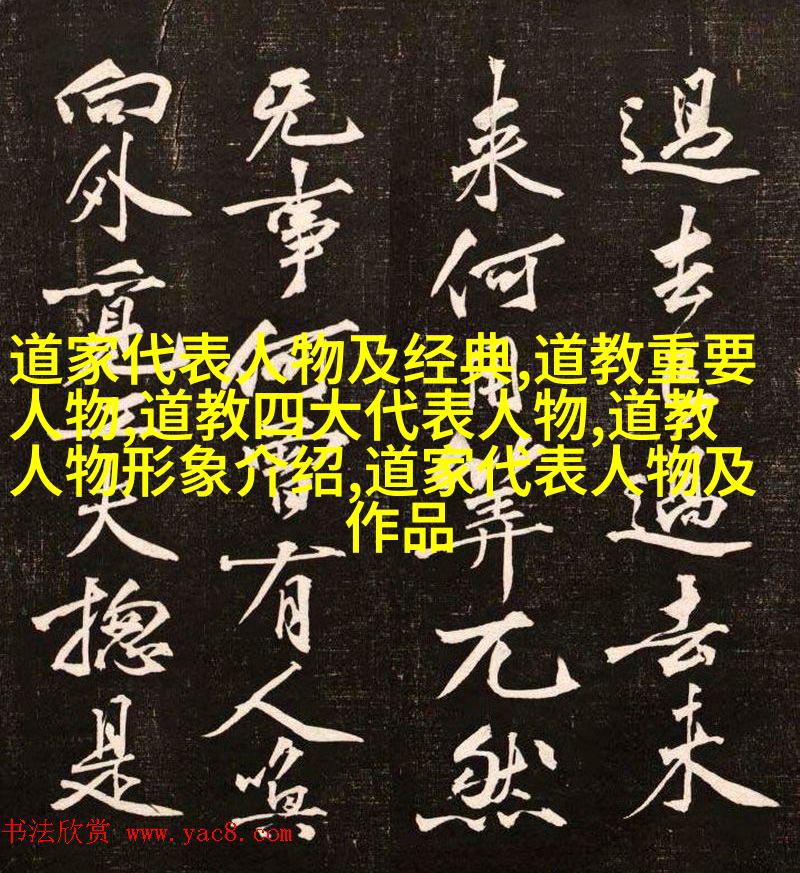 道家代表人物及经典,道教重要
人物,道教四大代表人物,道教
人物形象介绍,道家代表人物及
作品
過去過去未
来何用筭兀然
无事何曾有人喚
向外覓工夫摠是
书法欣赏 www.yac8.com